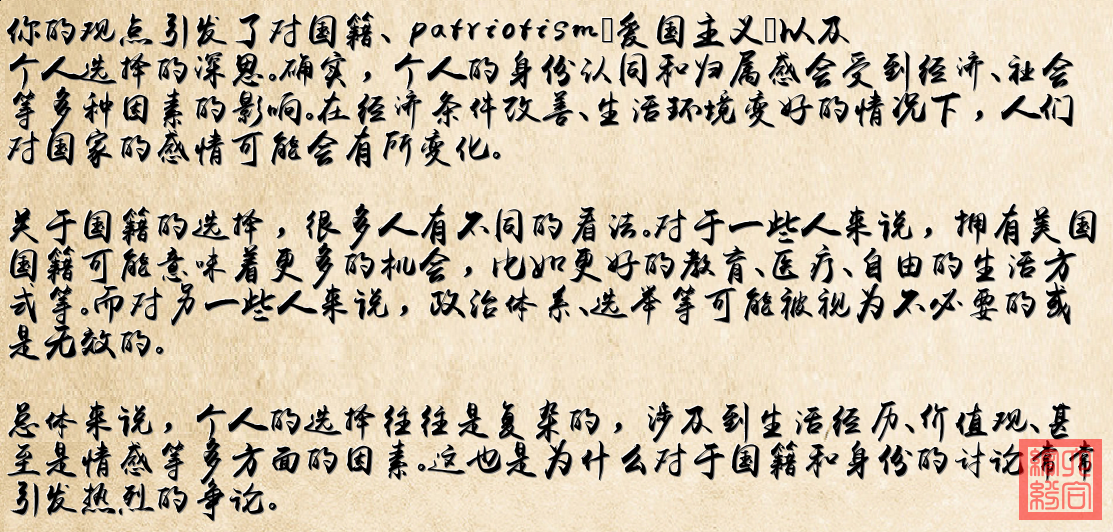 你的观点引发了对国籍、patriotism（爱国主义）以及
个人选择的深思。确实，个人的身份认同和归属感会受到经济、社会
等多种因素的影响。在经济条件改善、生活环境变好的情况下，人们
对国家的感情可能会有所变化。
关于国籍的选择，很多人有不同的看法。对于一些人来说，拥有美国
国籍可能意味着更多的机会，比如更好的教育、医疗、自由的生活方
式等。而对另一些人来说，政治体系、选举等可能被视为不必要的或
是无效的。
总体来说，个人的选择往往是复杂的，涉及到生活经历、价值观、甚
至是情感等多方面的因素。这也是为什么对于国籍和身份的讨论常常
引发热烈的争论。